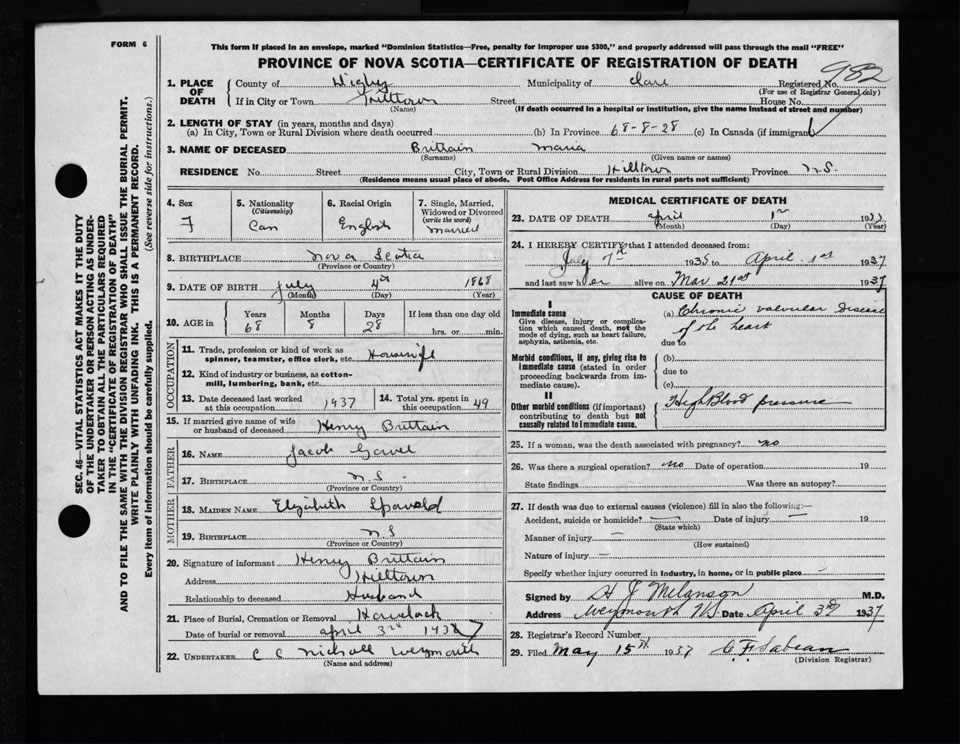 FORM 6
This form if placed in an envelope, marked "Dominion Statistics—Free, penalty for improper use $300," and properly addressed will pass through the mail "FREE"
PROVINCE OF NOVA SCOTIA—CERTIFICATE OF REGISTRATION OF DEATH
982
1. PLACE OF DEATH County of Digby Municipality of Clare Registered No.
(For use of Registrar General only)
If in City or Town Hilltown Street House No.
(Name) (If death occurred in a hospital or institution, give the name instead of street and number)
2. LENGTH OF STAY (in years, months and days)
(a) In City, Town or Rural Division where death occurred (b) In Province 68-8-28 (c) In Canada (if immigrant)
3. NAME OF DECEASED Brittain Maria
(Surname) (Given name or names)
RESIDENCE No. Street City, Town or Rural Division Hilltown Province N.S.
(Residence means usual place of abode. Post Office Address for residents in rural parts not sufficient)
4. Sex F
5. Nationality (Citizenship) Can
6. Racial Origin English
7. Single, Married, Widowed or Divorced (write the word) Married
8. BIRTHPLACE Nova Scotia
(Province or Country)
9. DATE OF BIRTH July 4th 1868
(Month) (Day) (Year)
10. AGE in Years Months Days If less than one day old
68 8 28 hrs. or min.
OCCUPATION
11. Trade, profession or kind of work as spinner, teamster, office clerk, etc. Housewife
12. Kind of industry or business, as cotton-mill, lumbering, bank, etc.
13. Date deceased last worked at this occupation 1937
14. Total yrs. spent in this occupation 49
15. If married give name of wife or husband of deceased Henry Brittain
FATHER
16. NAME Jacob
17. BIRTHPLACE N.S.
(Province or Country)
MOTHER
18. MAIDEN NAME Elizabeth
19. BIRTHPLACE N S
(Province or Country)
20. Signature of informant Henry Brittain
Address Hilltown
Relationship to deceased Husband
21. Place of Burial, Cremation or Removal Havelock
Date of burial or removal april 3rd 1937
22. UNDERTAKER C C Nicholl Weymouth
(Name and address)
MEDICAL CERTIFICATE OF DEATH
23. DATE OF DEATH april 1st 1937
(Month) (Day) (Year)
24. I HEREBY CERTIFY that I attended deceased from:
July 7th 1935 to April 1st 1937
and last saw her alive on Mar 21st 1937
CAUSE OF DEATH
I
Immediate cause
Give disease, injury or complication which caused death, not the mode of dying, such as heart failure, asphyxia, asthenia, etc.
(a) Chronic valvular disease
of the heart
due to
Morbid conditions, if any, giving rise to immediate cause (stated in order proceeding backwards from immediate cause).
(b)
due to
(c)
II
Other morbid conditions (if important) contributing to death but not causally related to immediate cause.
High Blood pressure
25. If a woman, was the death associated with pregnancy? no
26. Was there a surgical operation? no Date of operation 19
State findings Was there an autopsy?
27. If death was due to external causes (violence) fill in also the following:—
Accident, suicide or homicide? — Date of injury — 19
(State which)
Manner of injury —
(How sustained)
Nature of injury —
Specify whether injury occurred in industry, in home, or in public place —
Signed by H J Melanson M.D.
Address Weymouth NS Date April 3rd 1937
28. Registrar's Record Number
29. Filed May 15th 1937 C. F. Sabean
(Division Registrar)
SEC. 46—VITAL STATISTICS ACT MAKES IT THE DUTY
OF THE UNDERTAKER OR PERSON ACTING AS UNDER-
TAKER TO OBTAIN ALL THE PARTICULARS REQUIRED
IN THE "CERTIFICATE OF REGISTRATION OF DEATH"
AND TO FILE THE SAME WITH THE DIVISION REGISTRAR WHO SHALL ISSUE THE BURIAL PERMIT.
WRITE PLAINLY WITH UNFADING INK. THIS IS A PERMANENT RECORD.
Every item of information should be carefully supplied. (See reverse side for instructions.)